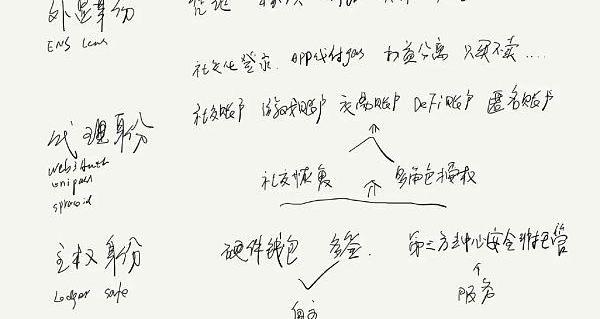 外显身份
ENS Lens
社交化登录. APP代付gas 权益分离 只买不卖....
社交账户 游戏账户 交易账户 DeFi账户 匿名账户
代理身份
web3Auth
unipass
社交恢复 多角色授权
主权身份 硬件钱包 多签. 第三方去中心安全托管
Ledger safe
服务